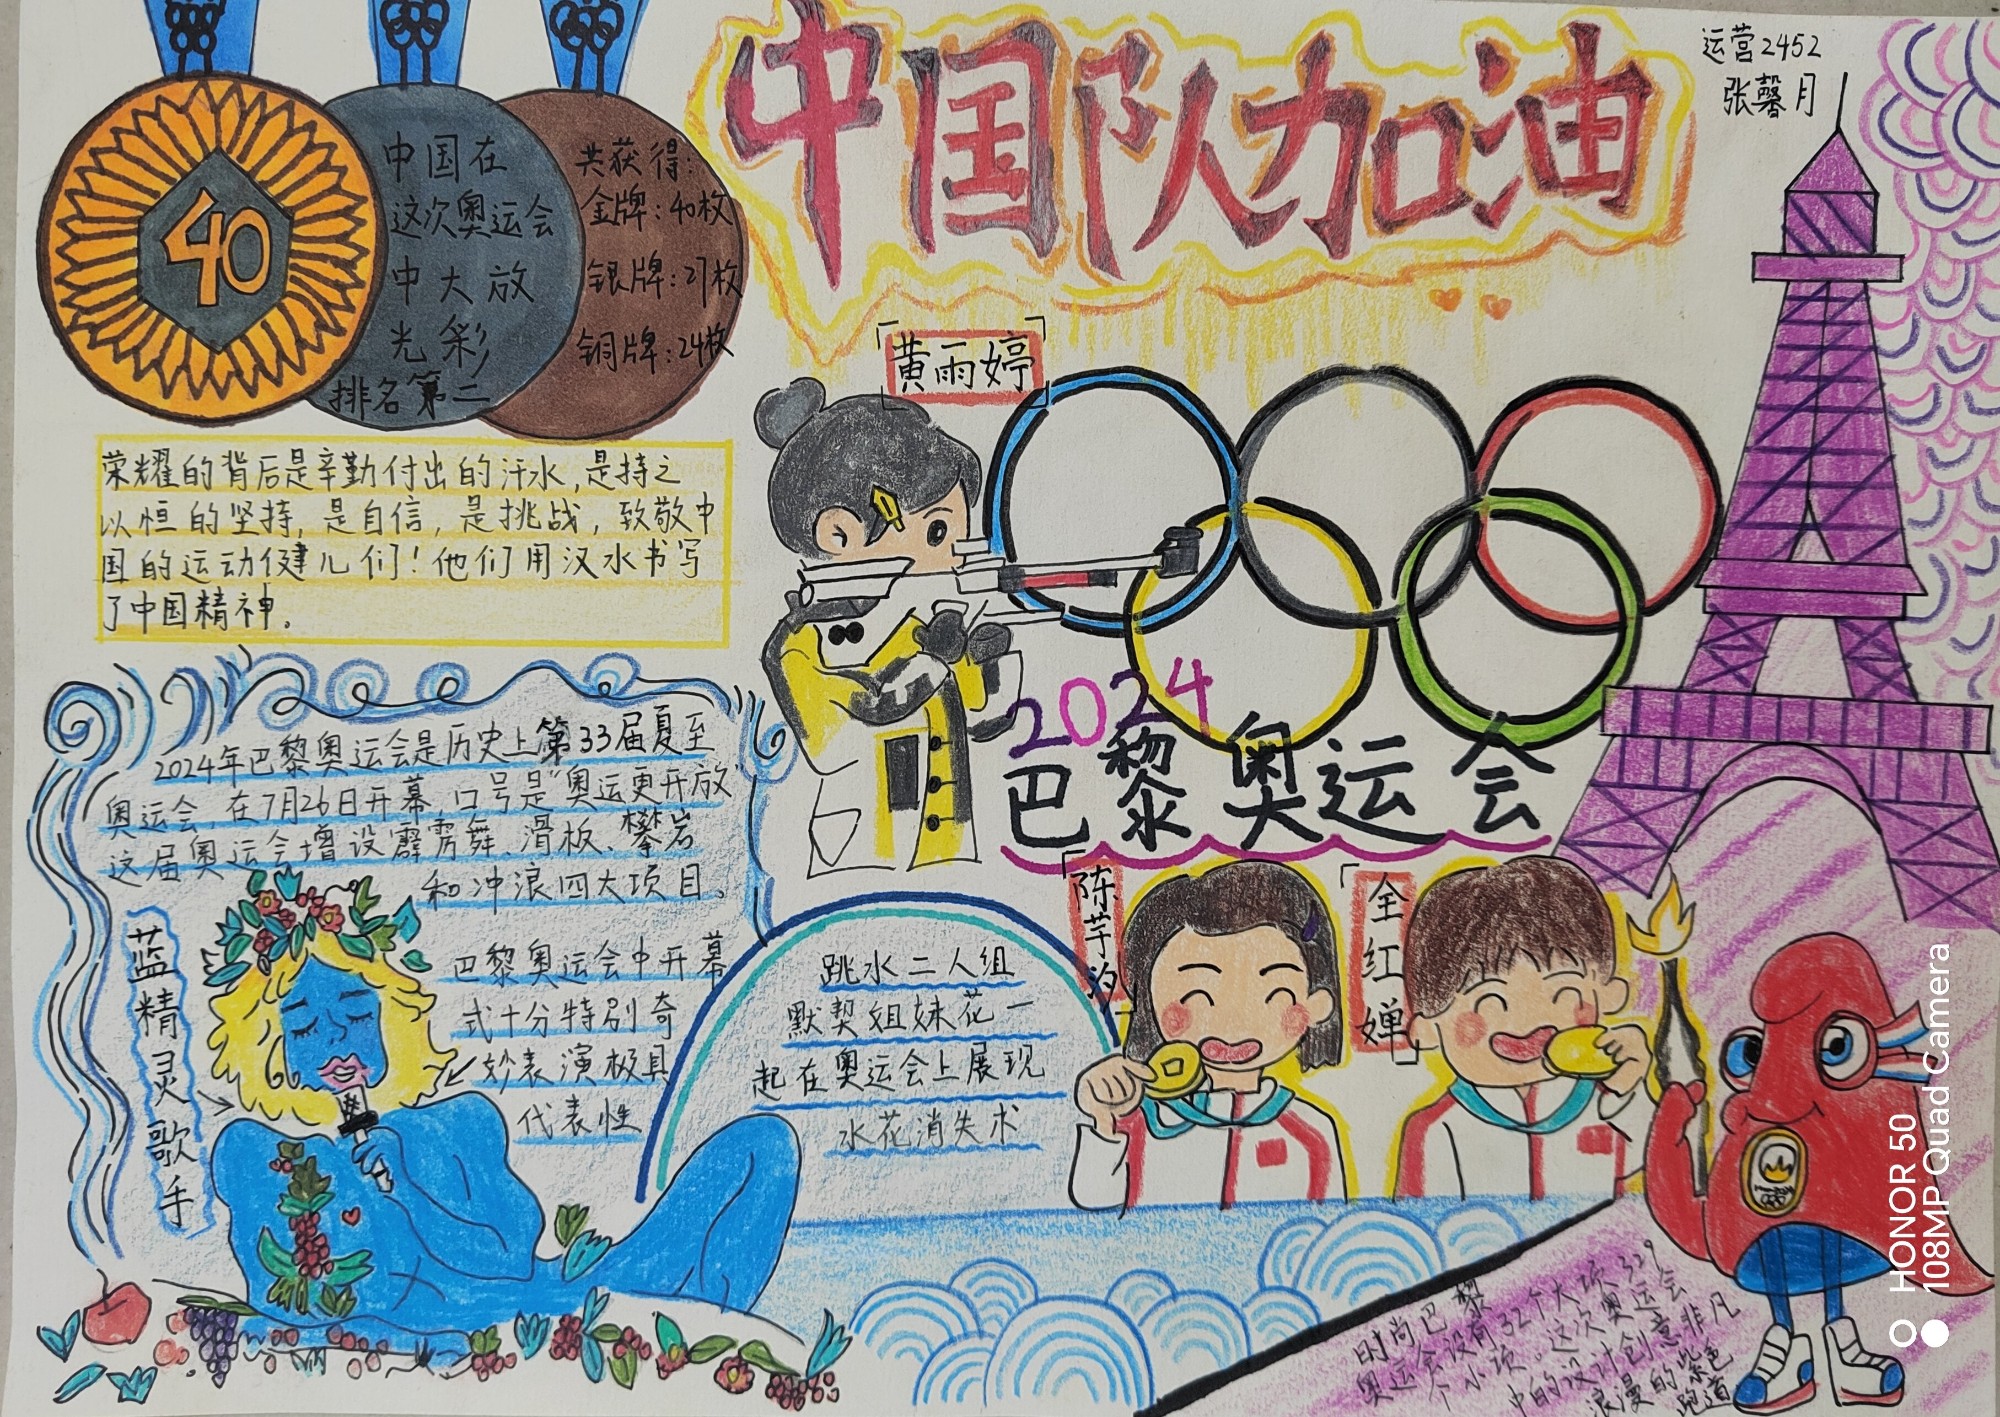 中国队加油
运营2452
张馨月
40
中国在
这次奥运会
中大放
光彩
排名第二
共获得:
金牌:40枚
银牌:27枚
铜牌:24枚
荣耀的背后是辛勤付出的汗水,是持之
以恒的坚持,是自信,是挑战,致敬中
国的运动健儿们!他们用汉水书写
了中国精神。
「黄雨婷」
2024
巴黎奥运会
2024年巴黎奥运会是历史上第33届夏至
奥运会,在7月26日开幕,口号是"奥运更开放"
这届奥运会增设霹雳舞、滑板、攀岩
和冲浪四大项目。
蓝精灵歌手
巴黎奥运会中开幕
式十分特别奇
妙表演极具
代表性
跳水二人组
默契姐妹花一
起在奥运会上展现
水花消失术
「陈芋汐」
「全红婵」
时尚巴黎
奥运会设有32个大项329
个小项。这次奥运会
中的设计创意非凡
浪漫的紫色
跑道
HONOR 50
108MP Quad Camera